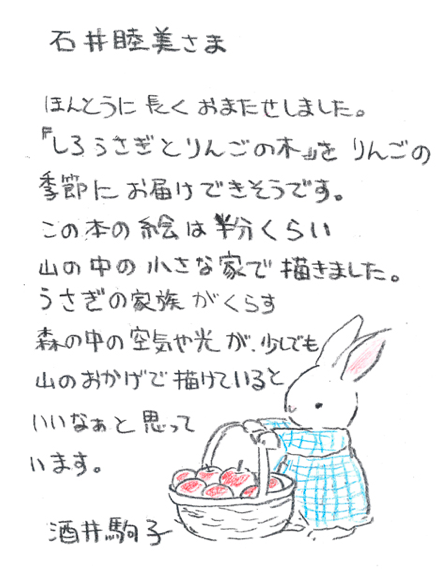 石井睦美さま
ほんとうに長くおまたせしました。
『しろうさぎとりんごの木』をりんごの
季節にお届けできそうです。
この本の絵は半分くらい
山の中の小さな家で描きました。
うさぎの家族がくらす
森の中の空気や光が、少しでも
山のおかげで描けていると
いいなぁと思って
います。
酒井駒子